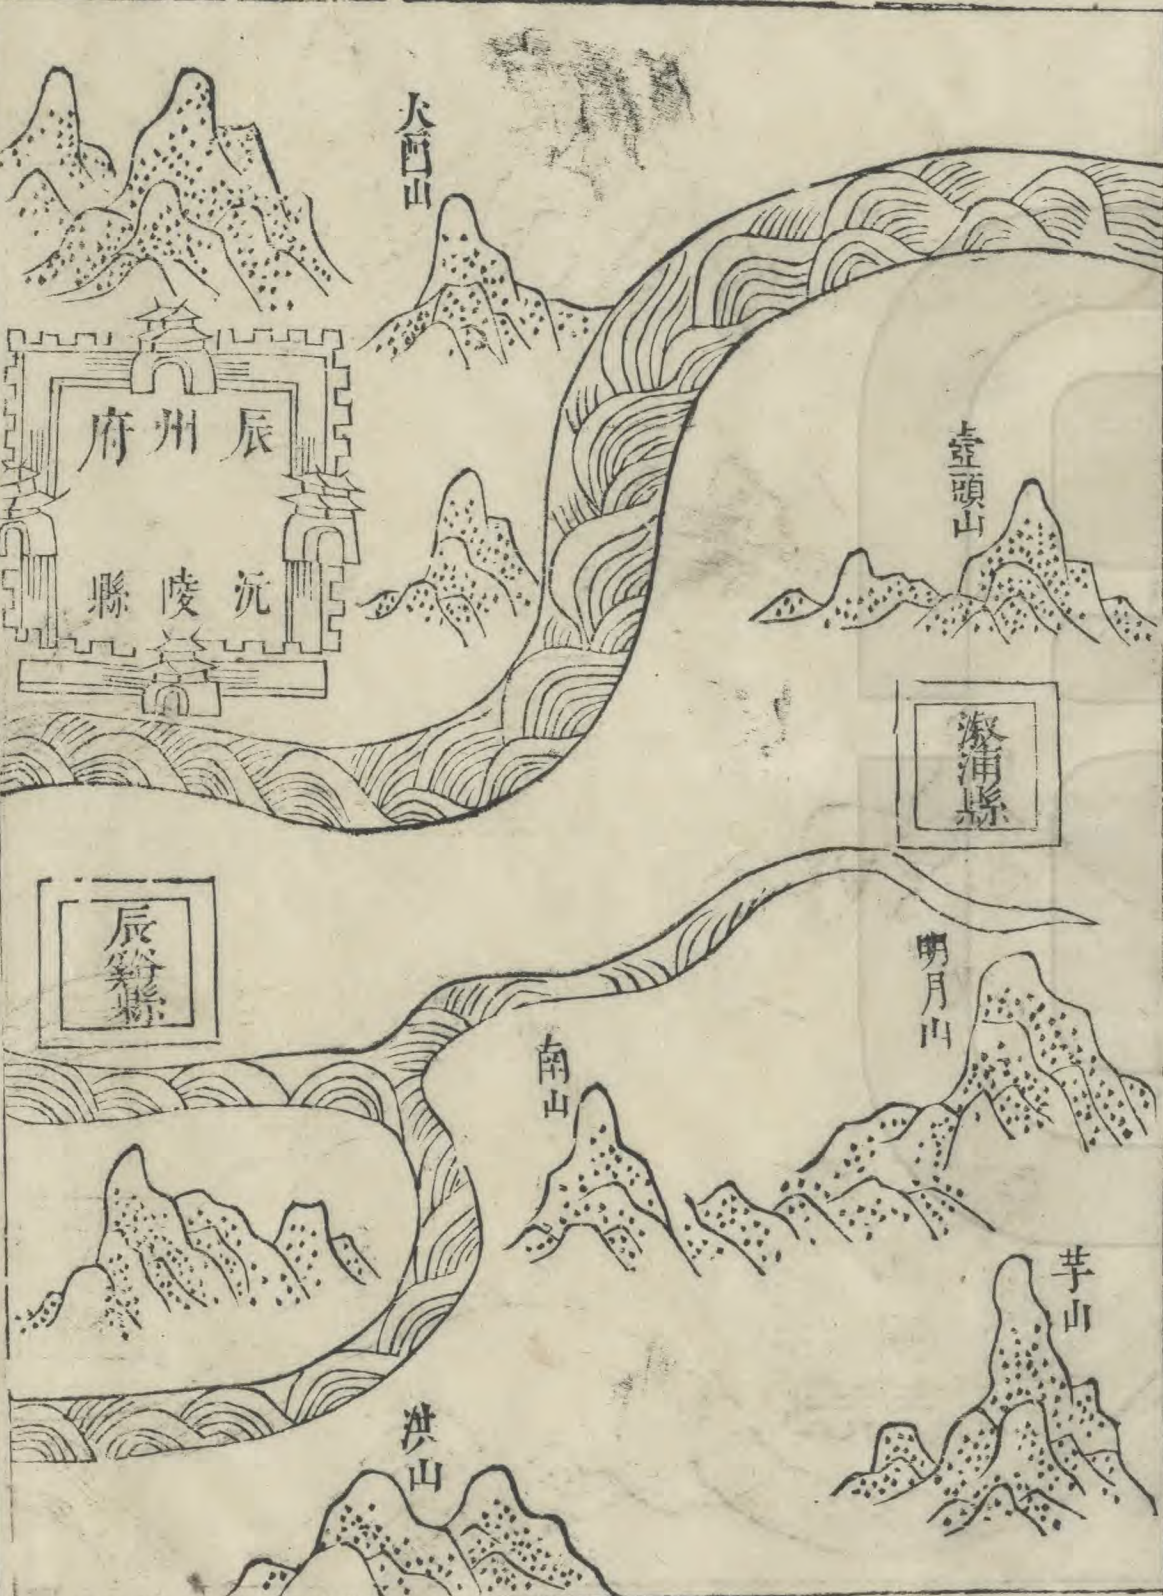 大酉山
辰州府
沅陵縣
壺頭山
漵浦縣
辰谿縣
明月山
南山
芋山
洪山